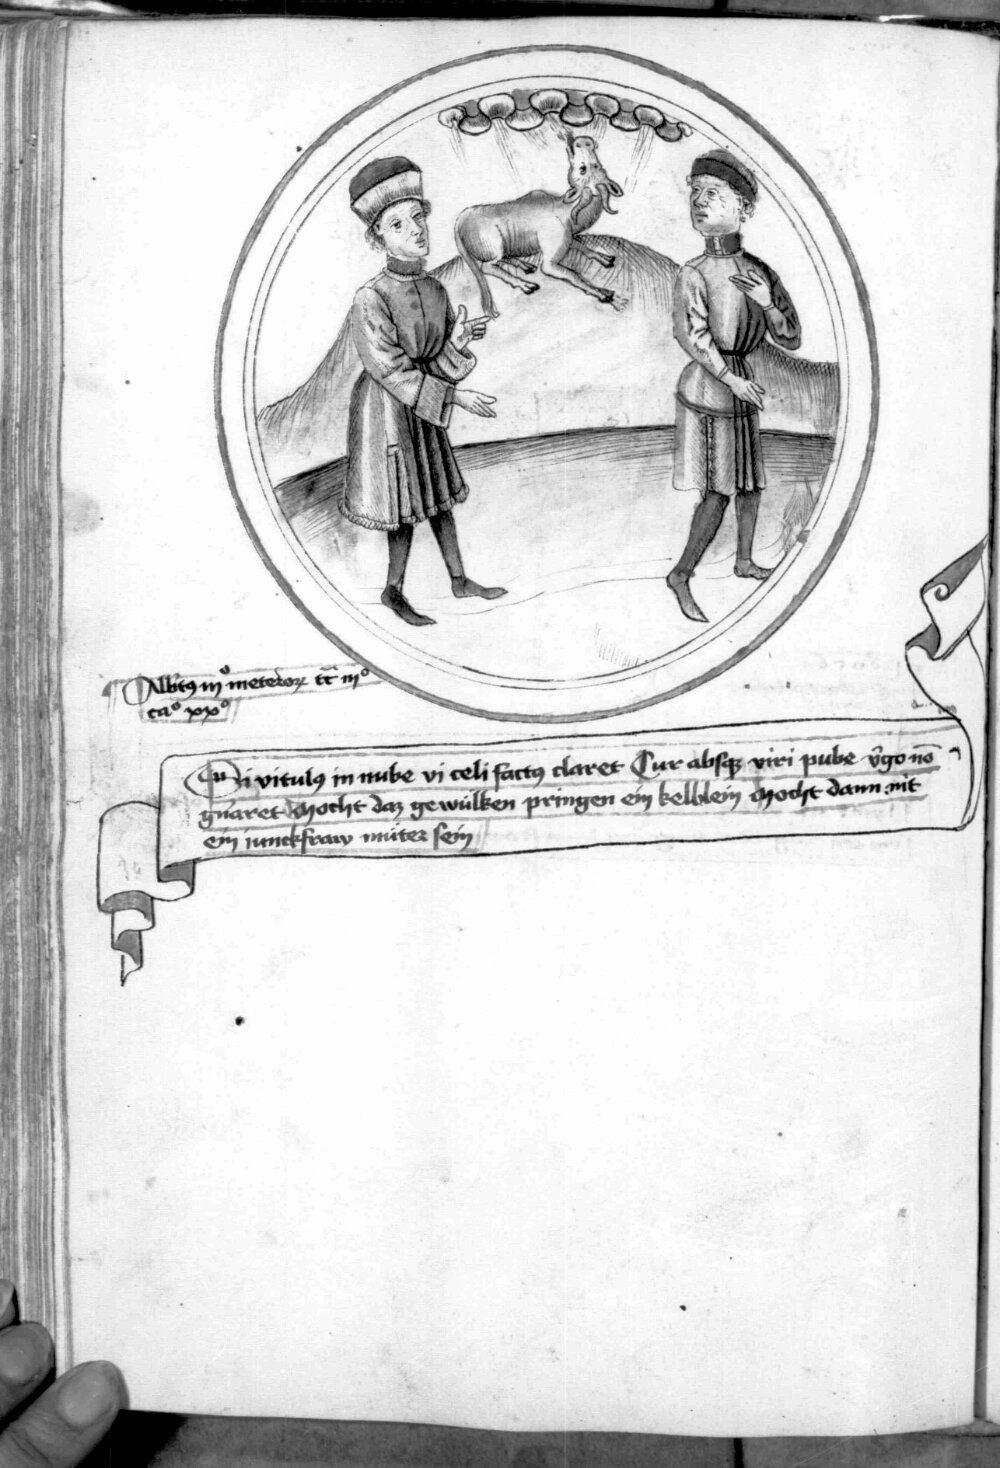 Albtꝰ iijº metheorꝝ tc̄ iijº
caº xxº
Si vitulꝰ in nube vi celi factꝰ claret Cur absqꝫ viri pube v̄go nō
gn̄aret Mocht daz gewülken pringen ein kelblein Mocht dann nit
ein iunckfraw müter sein